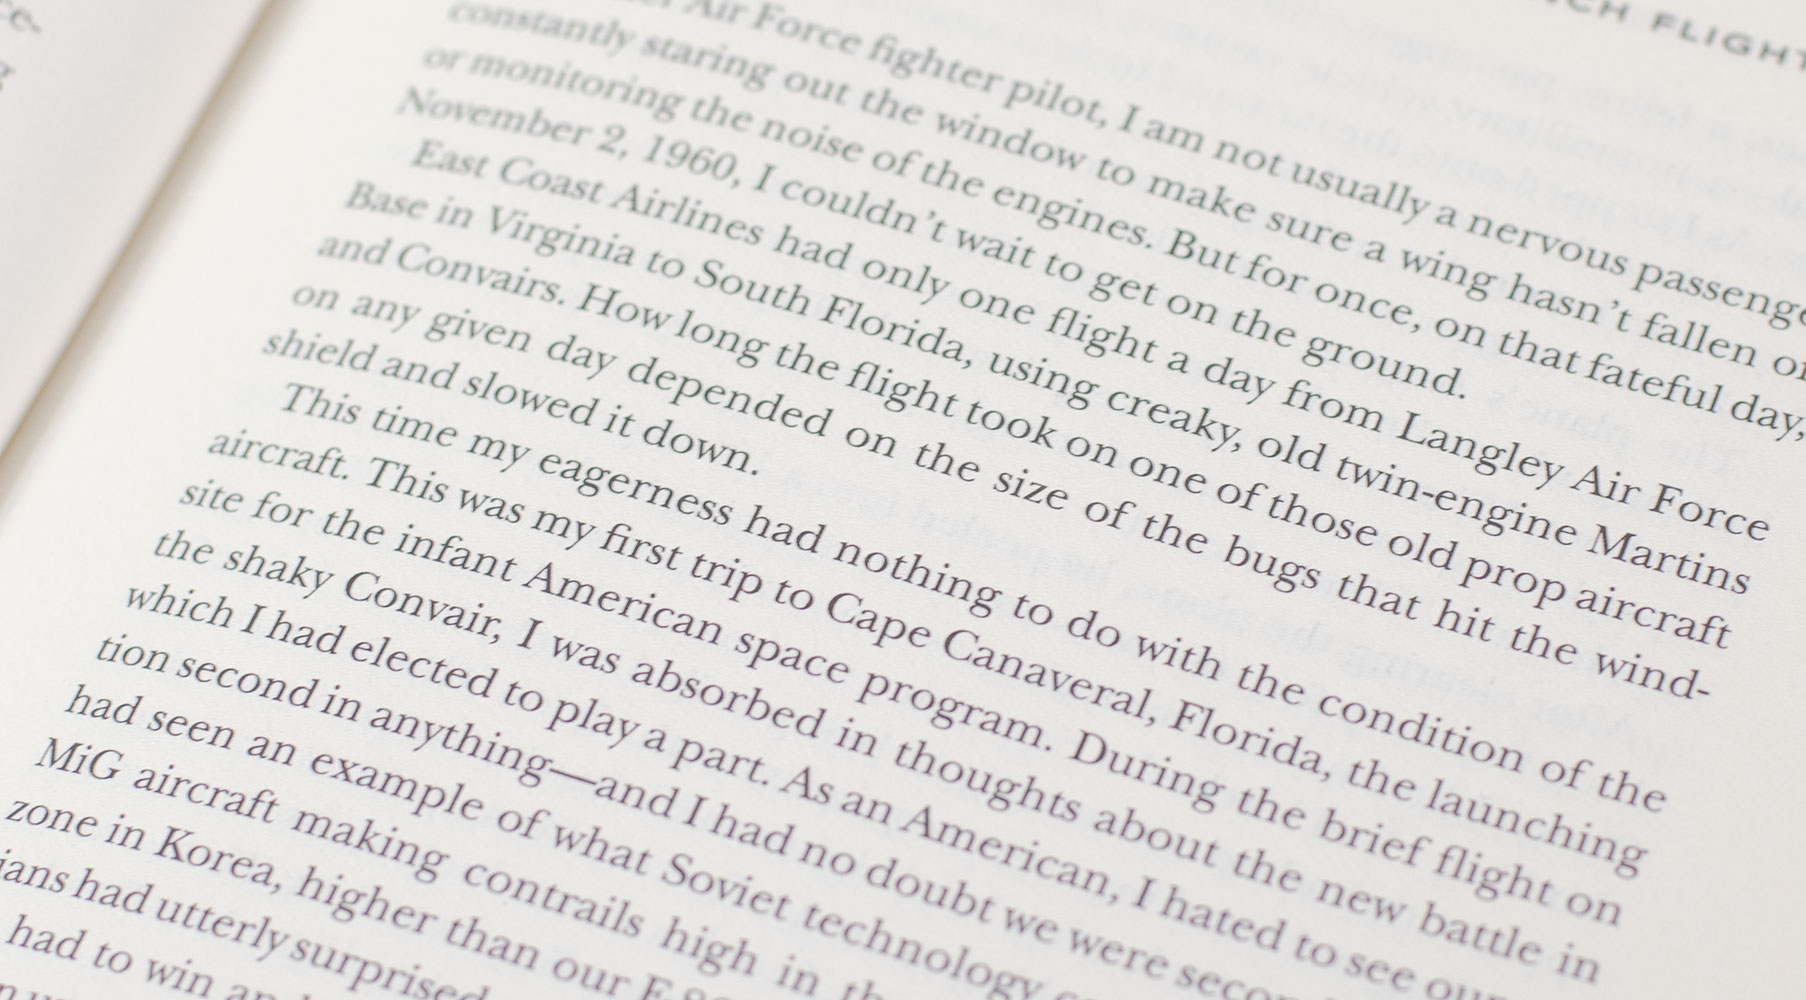 FLIGHT
Air Force fighter pilot, I am not usually a nervous passenge
constantly staring out the window to make sure a wing hasn't fallen
or monitoring the noise of the engines. But for once, on that fateful day,
November 2, 1960, I couldn't wait to get on the ground.
East Coast Airlines had only one flight a day from Langley Air Force
Base in Virginia to South Florida, using creaky, old twin-engine Martins
and Convairs. How long the flight took on one of those old prop aircraft
on any given day depended on the size of the bugs that hit the wind-
shield and slowed it down.
This time my eagerness had nothing to do with the condition of the
aircraft. This was my first trip to Cape Canaveral, Florida, the launching
site for the infant American space program. During the brief flight on
the shaky Convair, I was absorbed in thoughts about the new battle in
which I had elected to play a part. As an American, I hated to see our
tion second in anything—and I had no doubt we were second
had seen an example of what Soviet technology
MiG aircraft making contrails high in
zone in Korea, higher than our
ians had utterly surprised
had to win